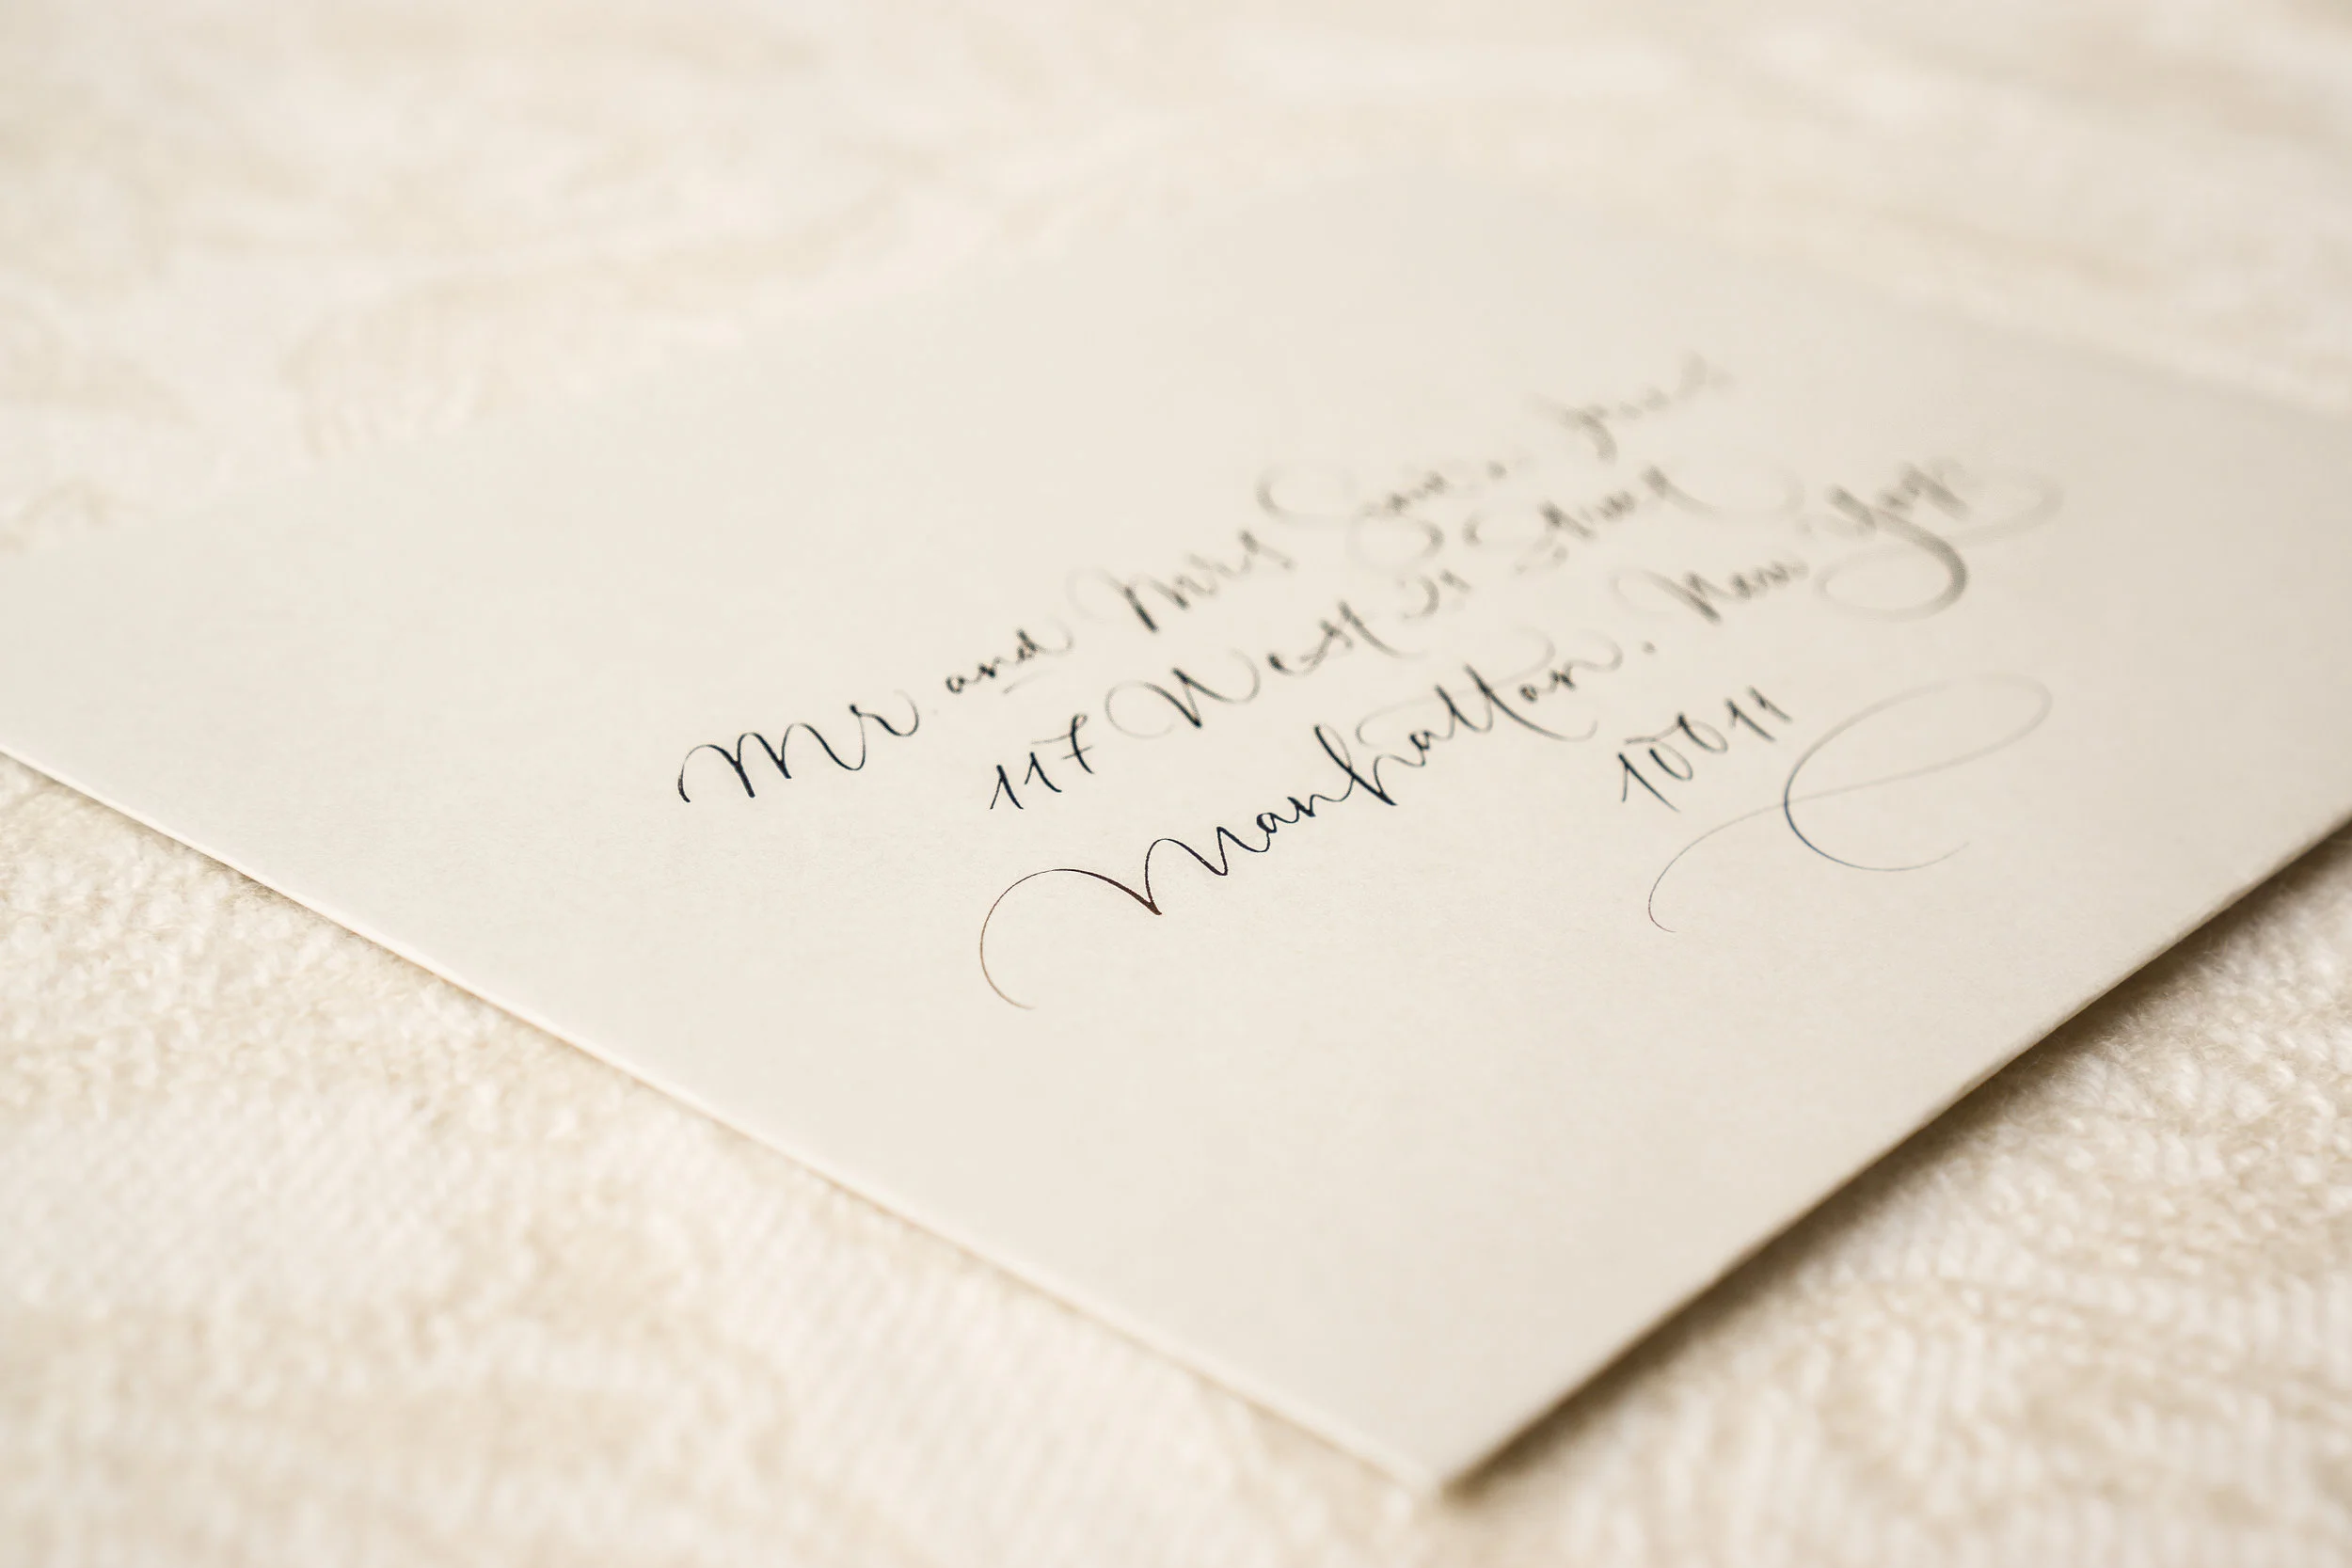 Mr and Mrs
117 West 21 Street
Manhattan, New York
10011